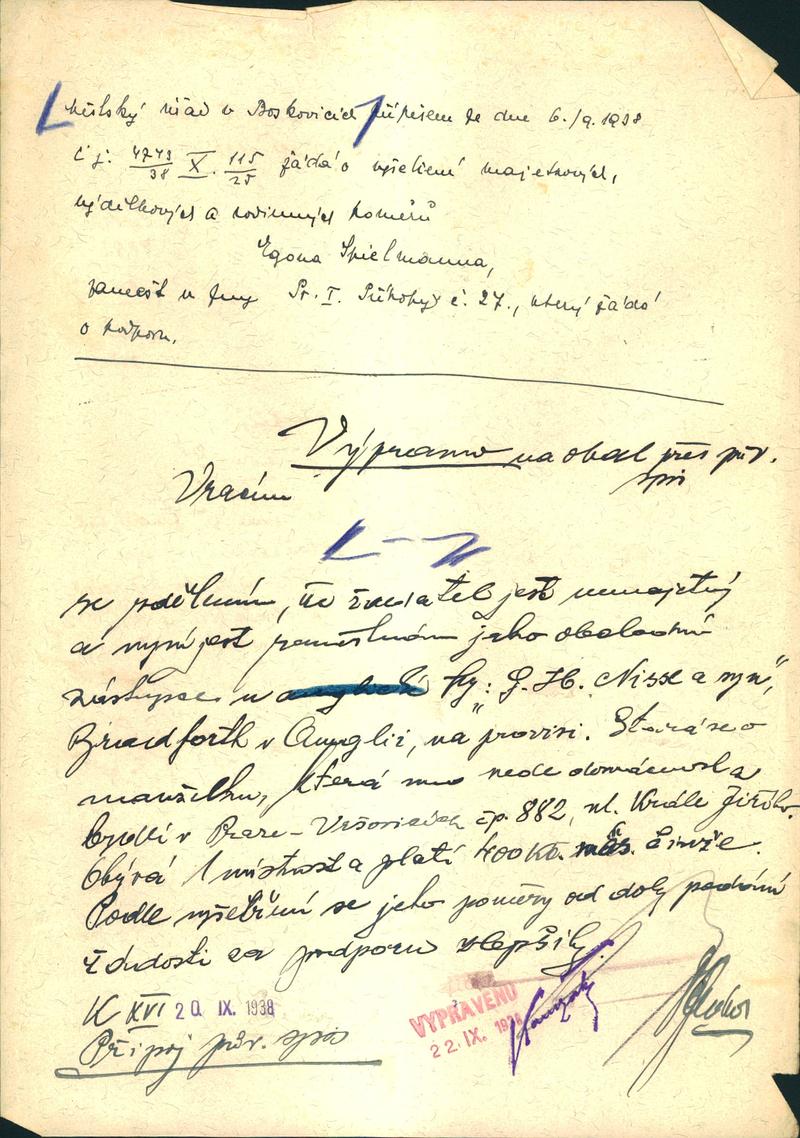 Městský úřad v Boskovicích přípisem ze dne 6./9.1938
č j. 4743/38 X. 115/25 žádá o vyšetření majetkových,
výdělkových a rodinných poměrů
Egona Spielmanna,
zaměst u fmy Pr. I. Příkopy č. 27., který žádá
o podporu.
Výpravno na obal přes pův.
spis
Vracím
se sdělením, že žadatel jest nemajetný
a nyní jest zaměstnán jako obchodní
zástupce u fy: "G. H. Nisse a syn",
Bradforth v Anglii, na provisi. Stará se o
manželku, která mu vede domácnost a
bydlí v Praze-Vršovicích čp. 882, ul. Krále Jiřího.
Obývá 1 místnost a platí 400 Kč. měs. činže.
Podle vyšetření se jeho poměry od doby podání
žádosti za podporu zlepšily.
K XVI 20. IX. 1938
Připoj pův. spis
VYPRAVENO
22. IX. 1938